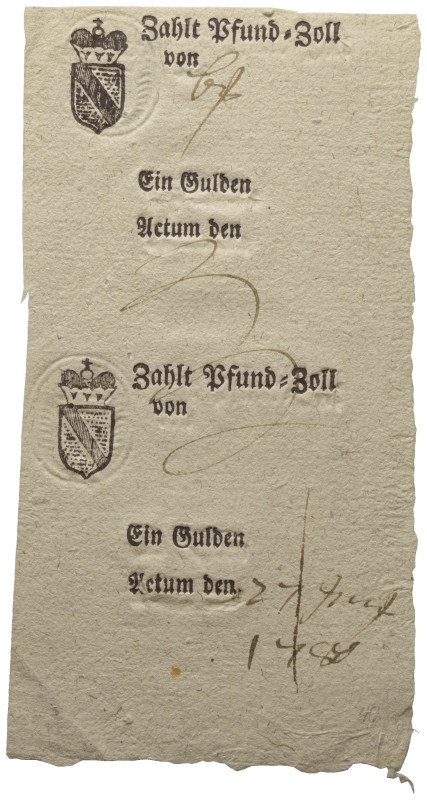 Zahlt Pfund-Zoll
von
Ein Gulden
Actum den
Zahlt Pfund-Zoll
von
Ein Gulden
Actum den